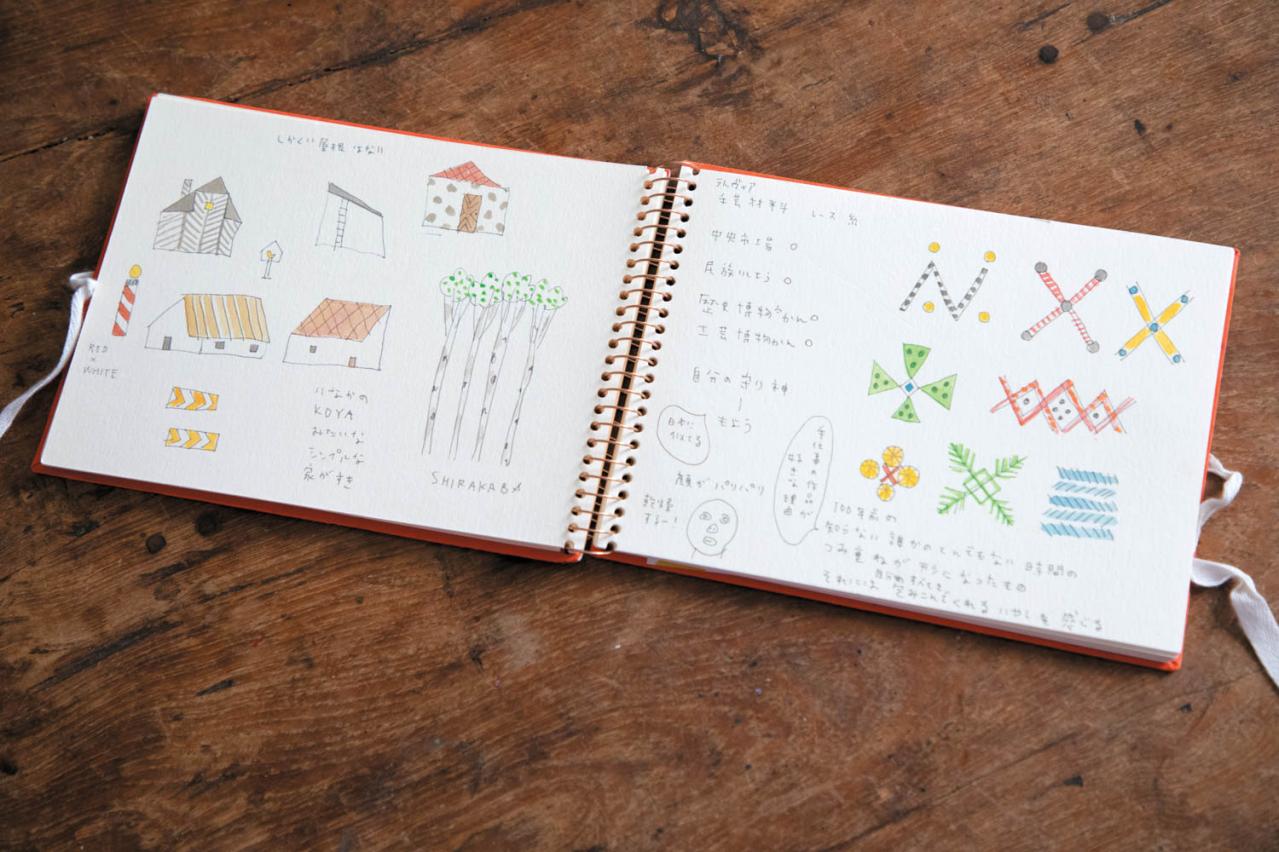 しかくい屋根はない
RED
×
WHITE
いなかの
KOYA
みたいな
シンプルな
家がすき
SHIRAKABA
手芸材料 レース糸
中央市場 ○
民族いしょう ○
歴史博物かん○
工芸博物かん ○
自分の守り神
|
もよう
日本に
似てる
顔がパリパリ
乾燥
するー!
手仕事の作品が
好きな理由
100年前の
知らない誰かのとんでもない時間の
つみ重ねが形になったもの
それには自分のすべてを
包みこんでくれるいやしを感じる